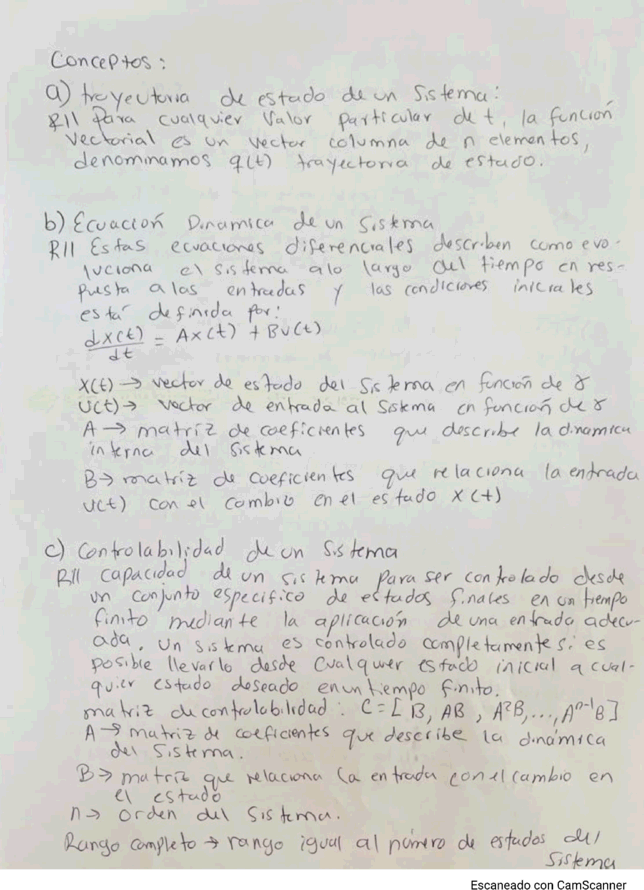 Conceptos:
a) trayectoria de estado de un Sistema:
R// Para cualquier Valor Particular de t, la función
vectorial es un vector columna de n elementos,
denominamos q(t) trayectoria de estado.
b) Ecuación Dinamica de un Sistema
R// Estas ecuaciones diferenciales describen como evo-
luciona el sistema a lo largo del tiempo en res-
puesta a las entradas y las condiciones iniciales
está definida por:
dx(t)/dt = Ax(t) + Bu(t)
X(t) → vector de estado del Sistema en función de γ
U(t) → vector de entrada al Sistema en función de γ
A → matriz de coeficientes que describe la dinamica
interna del sistema
B → matriz de coeficientes que relaciona la entrada
u(t) con el cambio en el estado X(t)
c) Controlabilidad de un Sistema
R// Capacidad de un sistema para ser controlado desde
un conjunto especifico de estados finales en un tiempo
finito mediante la aplicación de una entrada adecu-
ada. Un sistema es controlado completamente si es
posible llevarlo desde cualquier estado inicial a cual-
quier estado deseado en un tiempo finito.
matriz de controlabilidad: C = [B, AB, A²B, ..., Aⁿ⁻¹B]
A → matriz de coeficientes que describe la dinámica
del Sistema.
B → matriz que relaciona la entrada con el cambio en
el estado
n → orden del Sistema.
Rango completo → rango igual al número de estados del
Sistema
Escaneado con CamScanner